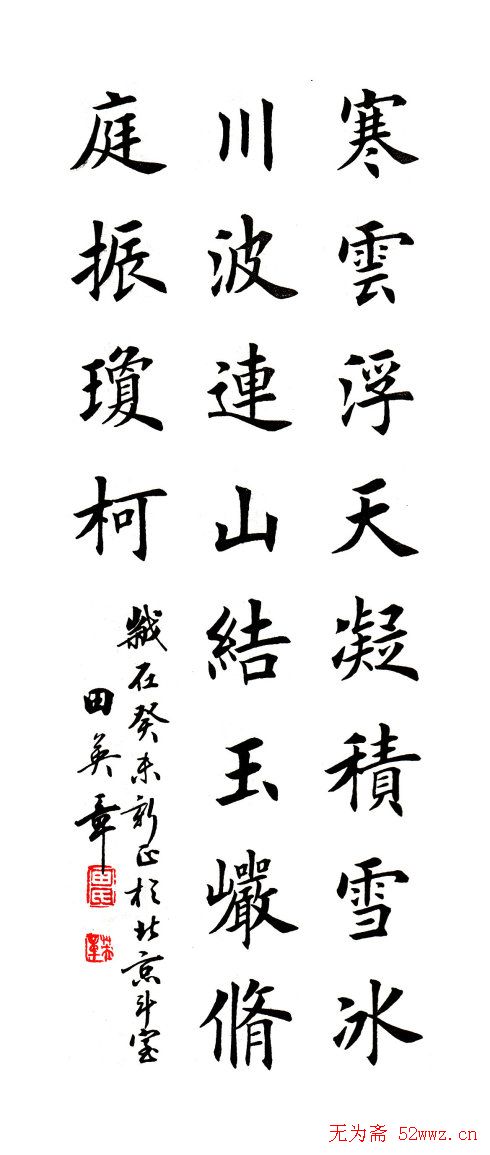 寒雲浮天凝積雪冰
川波連山結玉巖脩
庭振瓊柯
歲在癸未新正於北京斗室
田英章
田氏
英章
无为斋 52wwz.cn